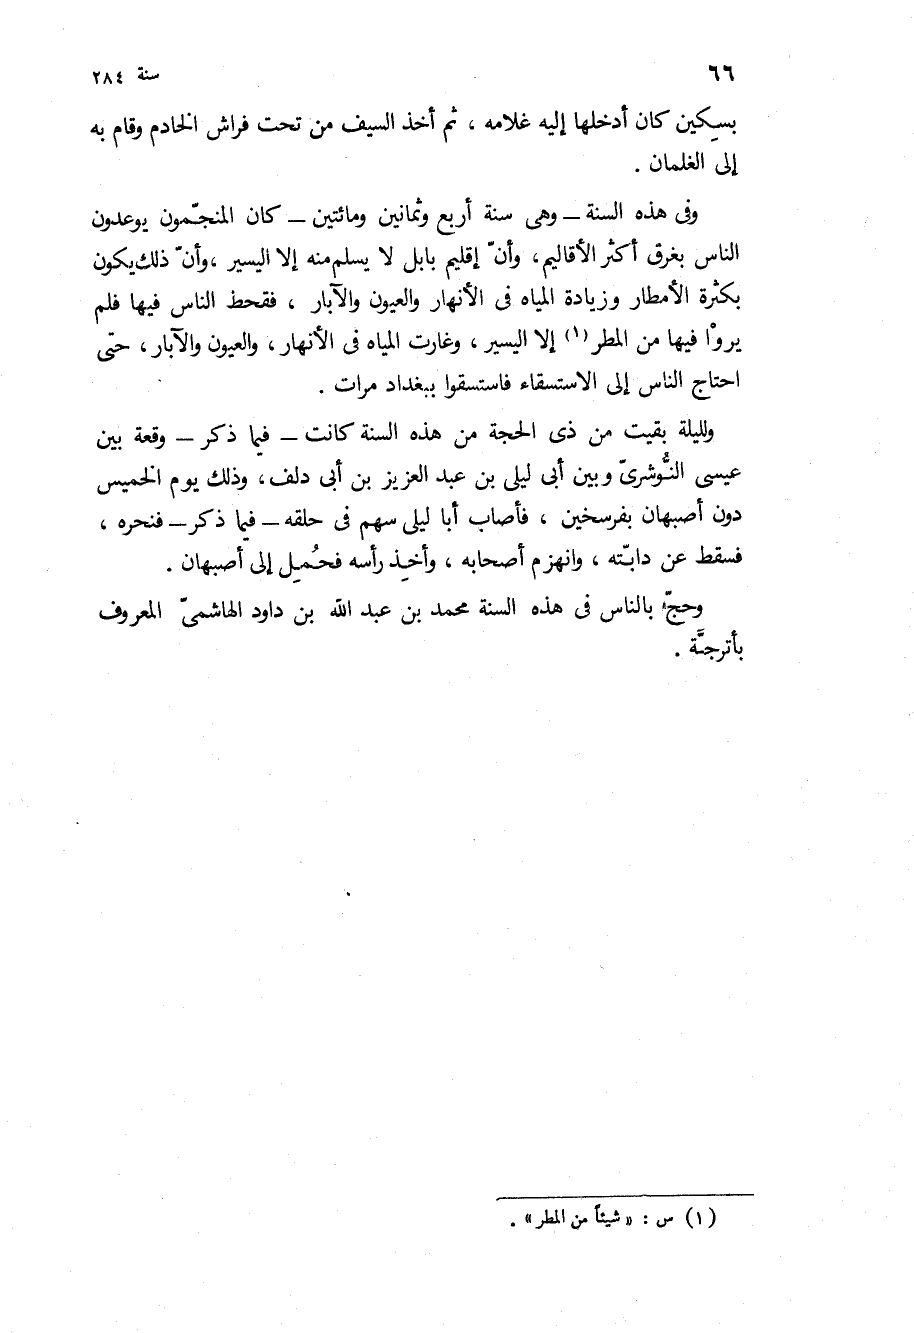 ٦٦ سنة ٢٨٤
بسكين كان أدخلها إليه غلامه ، ثم أخذ السيف من تحت فراش الخادم وقام به
إلى الغلمان .
وفى هذه السنة – وهى سنة أربع وثمانين ومائتين – كان المنجّمون يوعدون
الناس بغرق أكثر الأقاليم، وأنّ إقليم بابل لا يسلم منه إلا اليسير ، وأنّ ذلك يكون
بكثرة الأمطار وزيادة المياه فى الأنهار والعيون والآبار ، فقحط الناس فيها فلم
يروْا فيها من المطر(١) إلا اليسير ، وغارت المياه فى الأنهار ، والعيون والآبار ، حتى
احتاج الناس إلى الاستسقاء فاستسقوا ببغداد مرات .
ولليلة بقيت من ذى الحجة من هذه السنة كانت – فيما ذكر – وقعة بين
عيسى النُّوشرىّ وبين أبى ليلى بن عبد العزيز بن أبى دلف ، وذلك يوم الخميس
دون أصبهان بفرسخين ، فأصاب أبا ليلى سهم فى حلقه – فيما ذكر – فنحره ،
فسقط عن دابّته ، وانهزم أصحابه ، وأخِذ رأسه فحُمِل إلى أصبهان .
وحجّ بالناس فى هذه السنة محمد بن عبد الله بن داود الهاشمىّ المعروف
بأترجَّة .
(١) س : « شيئاً من المطر » .